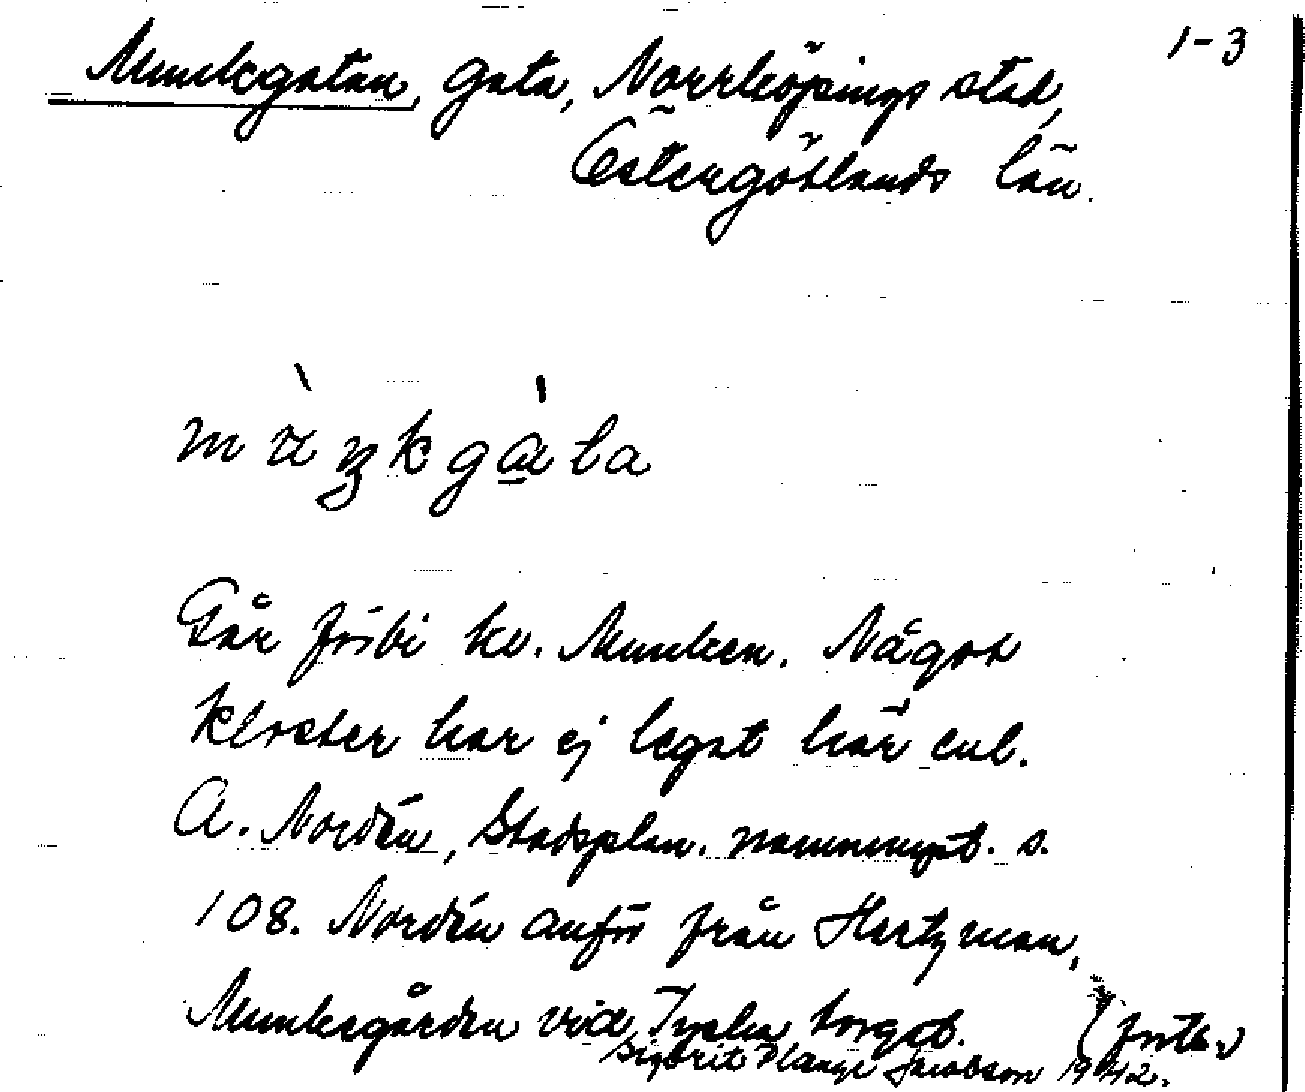 1-3
Munkgatan, gata, Norrköpings stad,
Östergötlands län.
Går förbi kv. Munken. Något
kloster har ej legat här enl.
A. Nordén, Stadsplan. namnmynt. s.
108. Nordén anför från Hertzman,
Munkegården vid Tyska torget. (forts.)
Sigbrit Plaenge Jacobson 1942.